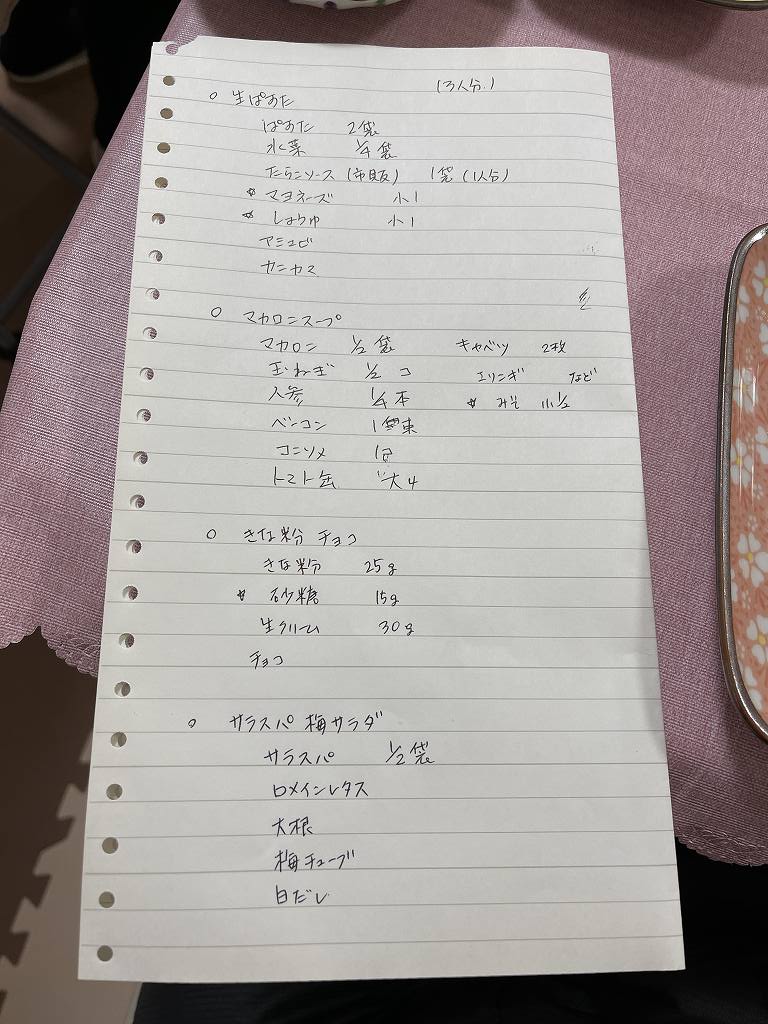 (3人分)
○ 生ぱすた
ぱすた 2袋
水菜 1/4袋
たらこソース(市販) 1袋(1人分)
☆ マヨネーズ 小1
☆ しょうゆ 小1
アミエビ
カニカマ
○ マカロニスープ
マカロン 1/2袋 キャベツ 2枚
玉ねぎ 1/2コ エリンギ など
人参 1/4本 ☆ みそ 小1/2
ベーコン 1束
コンソメ 1コ
トマト缶 大4
○ きな粉チョコ
きな粉 25g
☆ 砂糖 15g
生クリーム 30g
チョコ
○ サラスパ梅サラダ
サラスパ 1/2袋
ロメインレタス
大根
梅チューブ
白だし